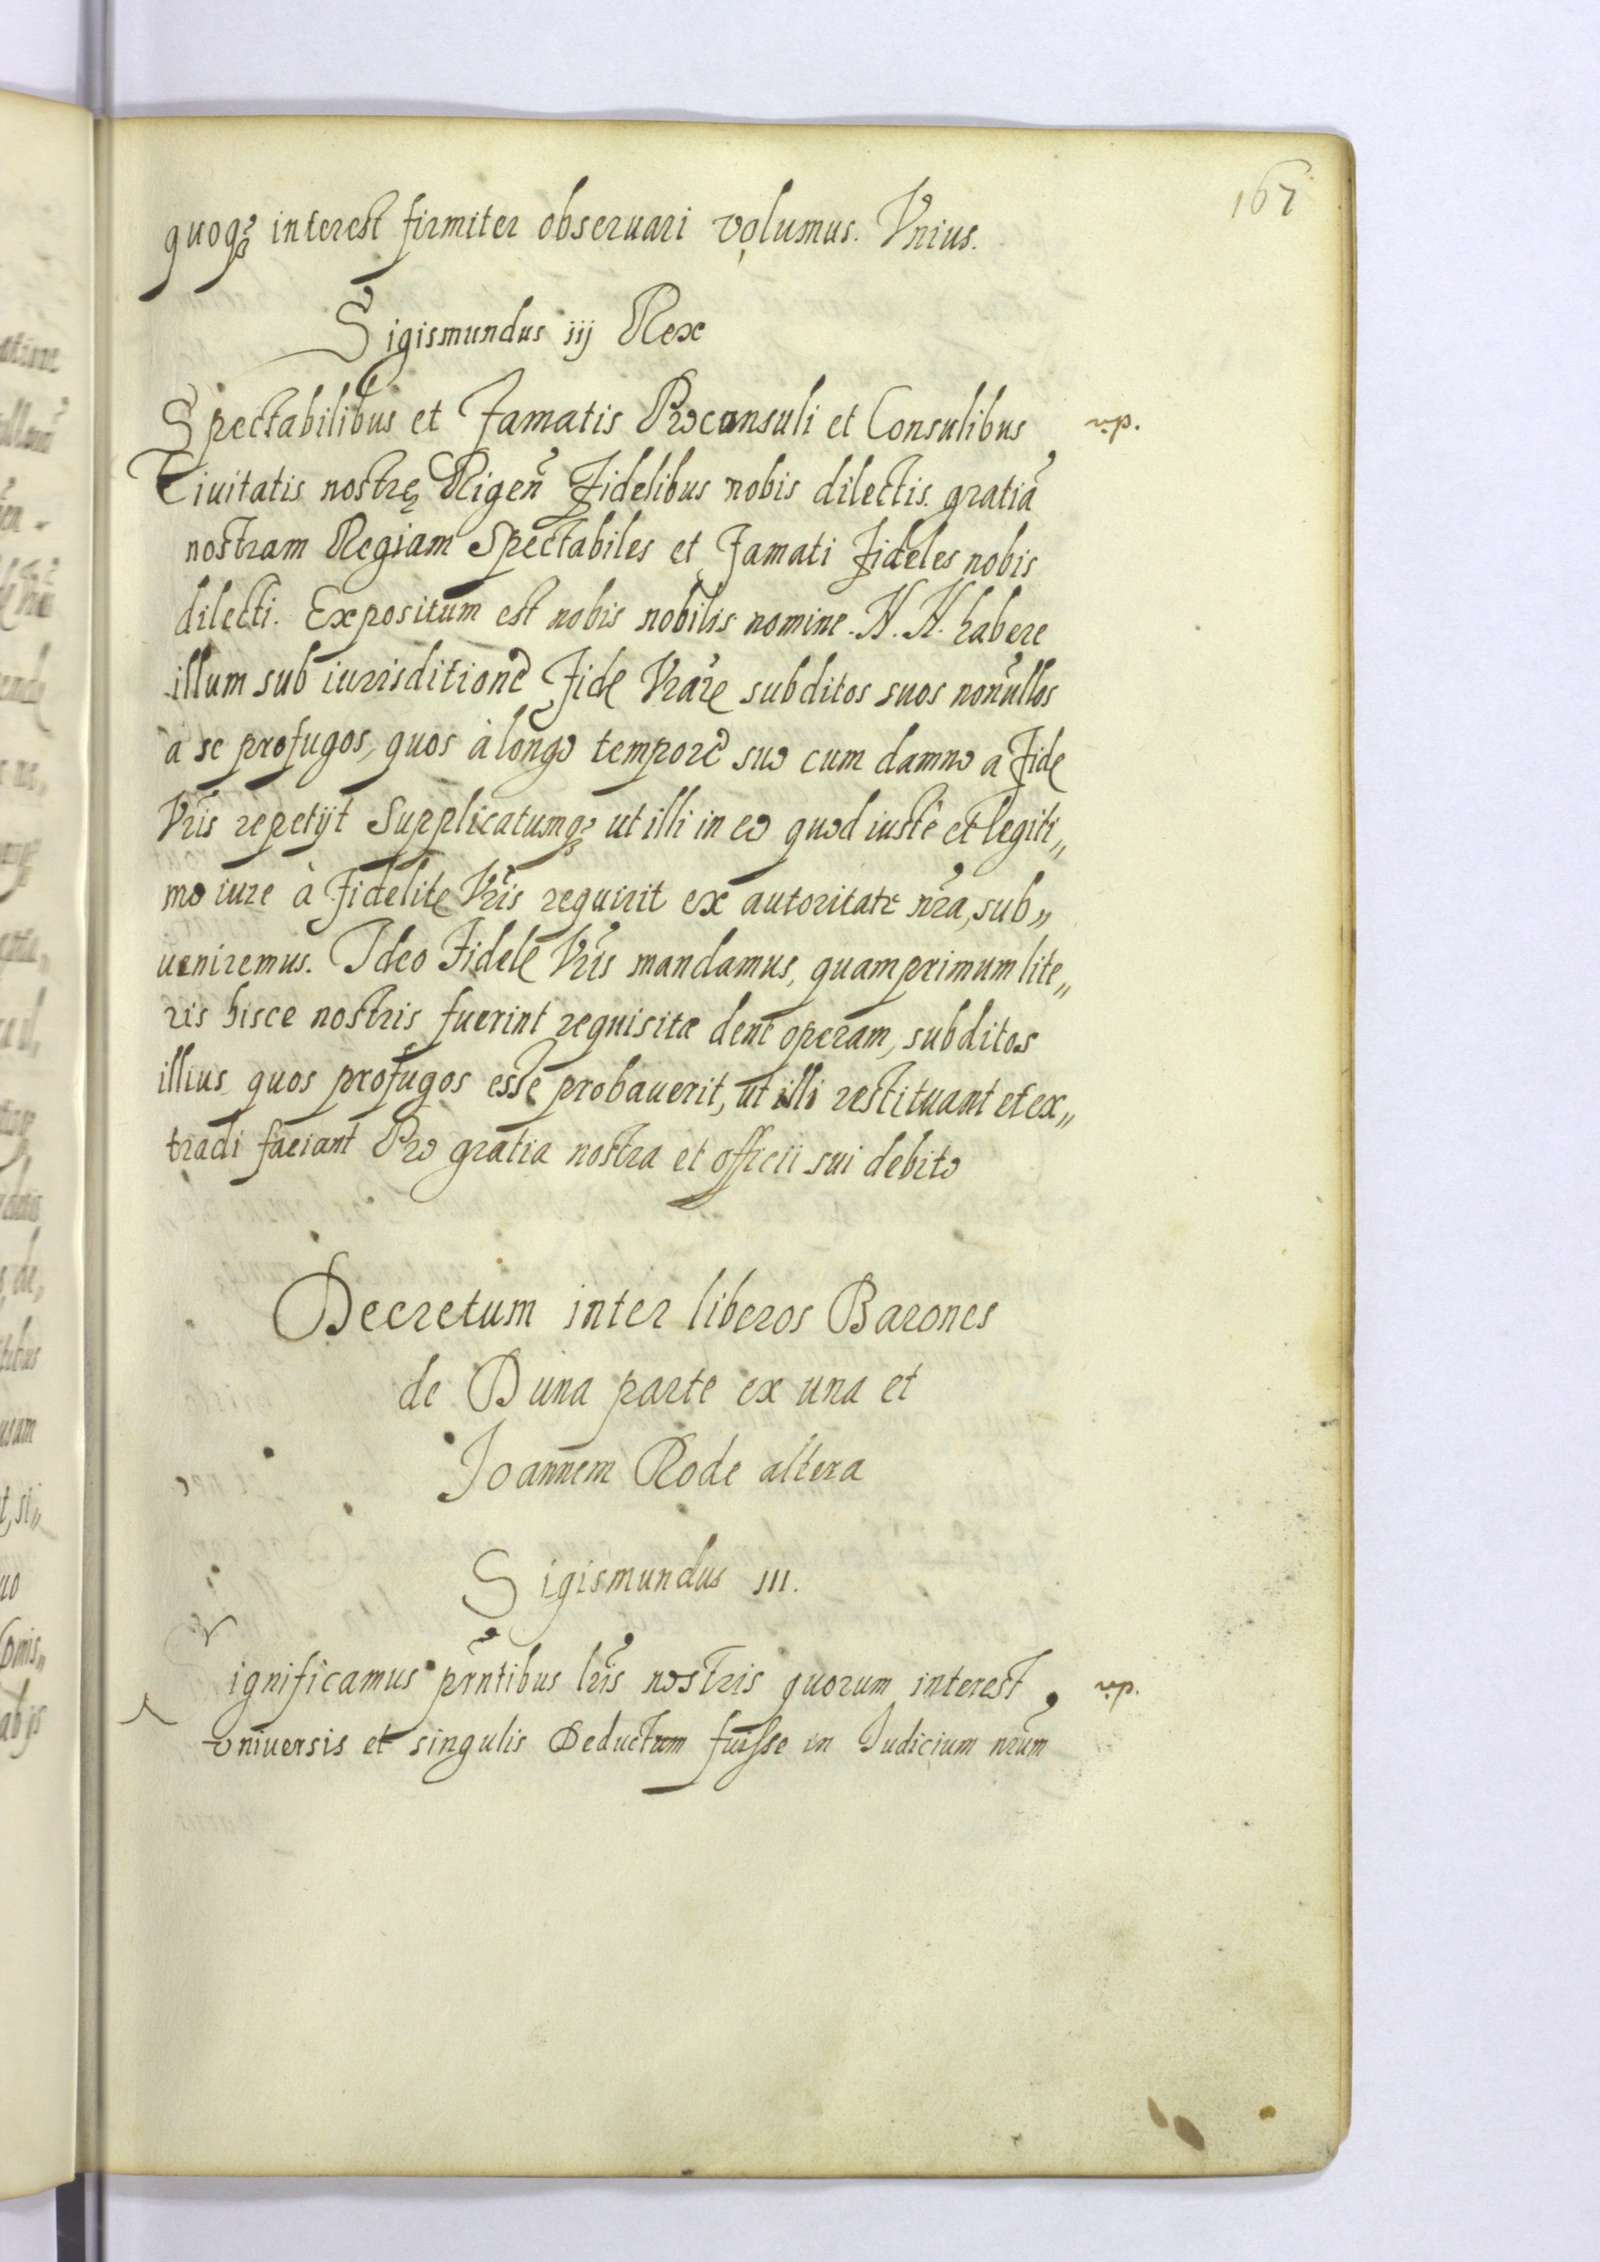 167
quoqꝫ interest firmiter obseruari volumus. Vnius.
Sigismundus iij Rex
Spectabilibus et Famatis Proconsuli et Consulibus
Ciuitatis nostrę Rigen̄ Fidelibus nobis dilectis. gratiā
nostram Regiam Spectabiles et Famati Fideles nobis
dilecti. Expositum est nobis nobilis nomine. N. N. habere
illum sub iurisditione Fide Vrāre subditos suos nonūllos
a se profugos, quos à longo tempore suo cum damno a Fide
Vrīs repetijt Supplicatumqꝫ ut illi in eo quod iustè et legiti„
mo iure à Fidelite Vrīs requirit ex autoritate nrā, sub„
ueniremus. Ideo Fidele Vrīs mandamus, quamprimum lite„
ris hisce nostris fuerint requisitæ dent operam, subditos
illius quos profugos esse probauerit, ut illi restituant et ex„
tradi faciant Pro gratia nostra et officii sui debito
Decretum inter liberos Barones
de Duna parte ex una et
Joannem Rode altera
Sigismundus III.
Significamus prn̄tibus lrīs nostris quorum interest,
vniuersis et singulis Deductum fuisse in Iudicium nrūm